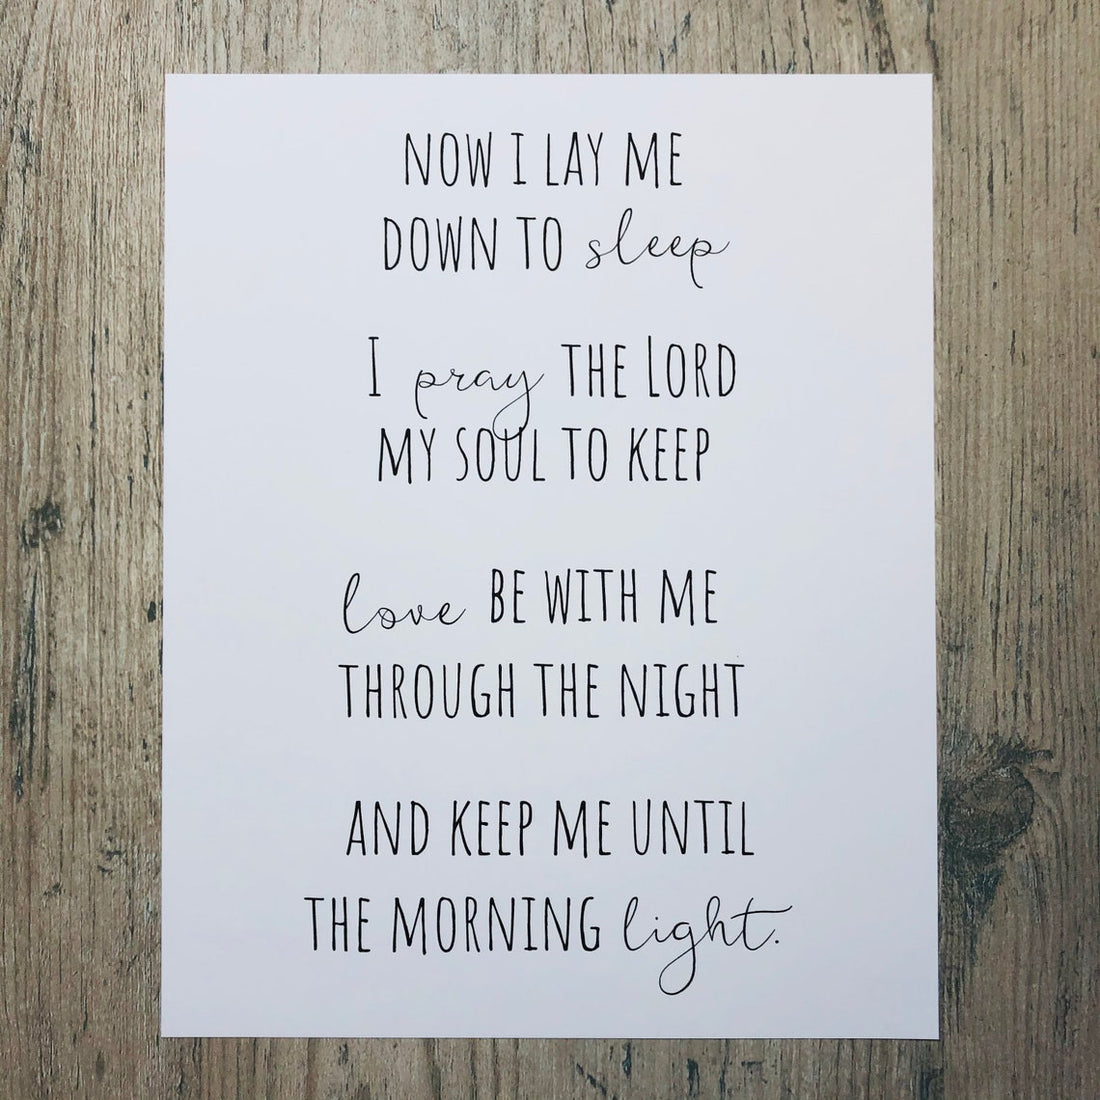 NOW I LAY ME
DOWN TO sleep
I pray THE LORD
MY SOUL TO KEEP
love BE WITH ME
THROUGH THE NIGHT
AND KEEP ME UNTIL
THE MORNING light.